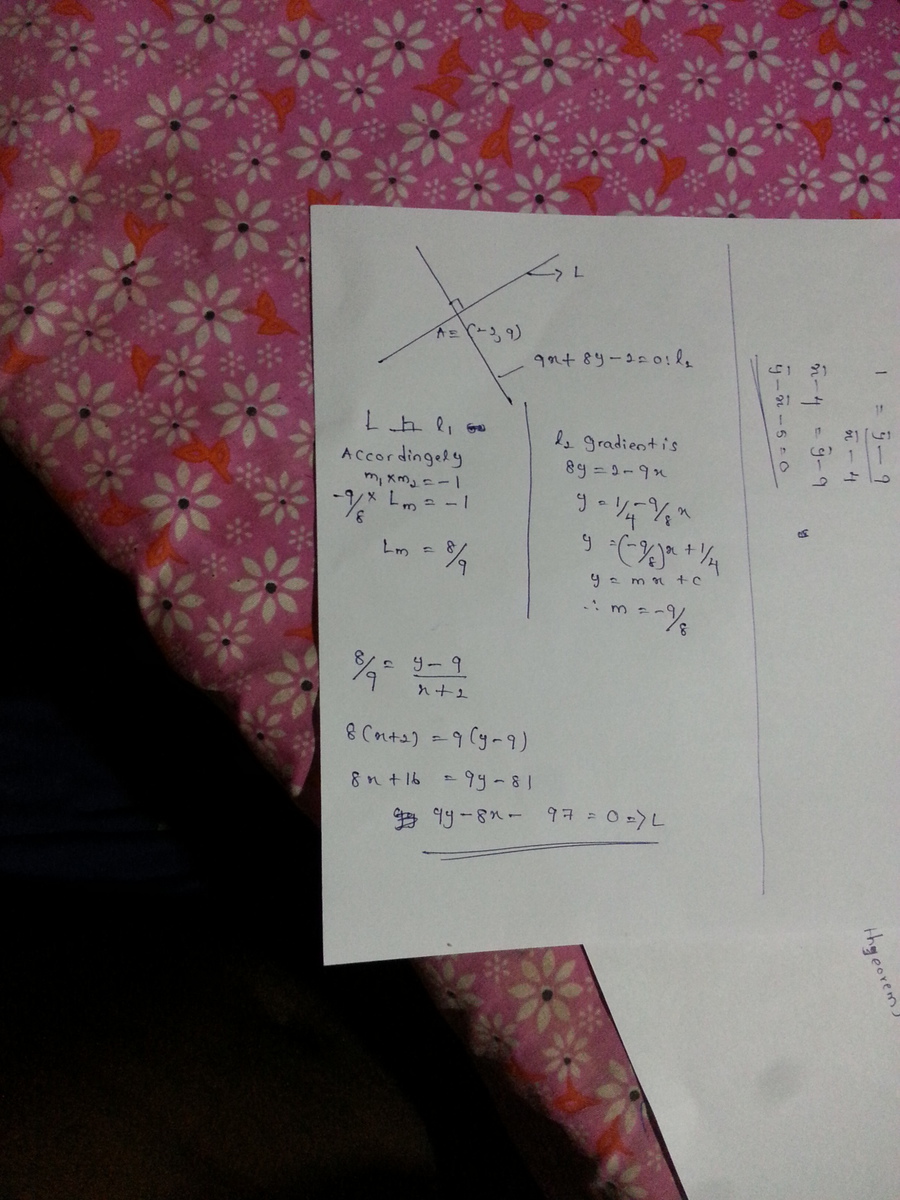 L
A = (-2, 9)
9x + 8y - 2 = 0 : l₂
L ⊥ l₁
Accordingely
m₁ × m₂ = -1
-9/8 × Lm = -1
Lm = 8/9
l₂ gradient is
8y = 2 - 9x
y = 1/4 - 9/8 x
y = (-9/8)x + 1/4
y = mx + c
∴ m = -9/8
8/9 = (y - 9)/(x + 2)
8(x+2) = 9(y-9)
8x + 16 = 9y - 81
9y - 8x - 97 = 0 => L
1 = (ȳ - 9)/(x̄ - 4)
x̄ - 4 = ȳ - 9
ȳ - x̄ - 5 = 0